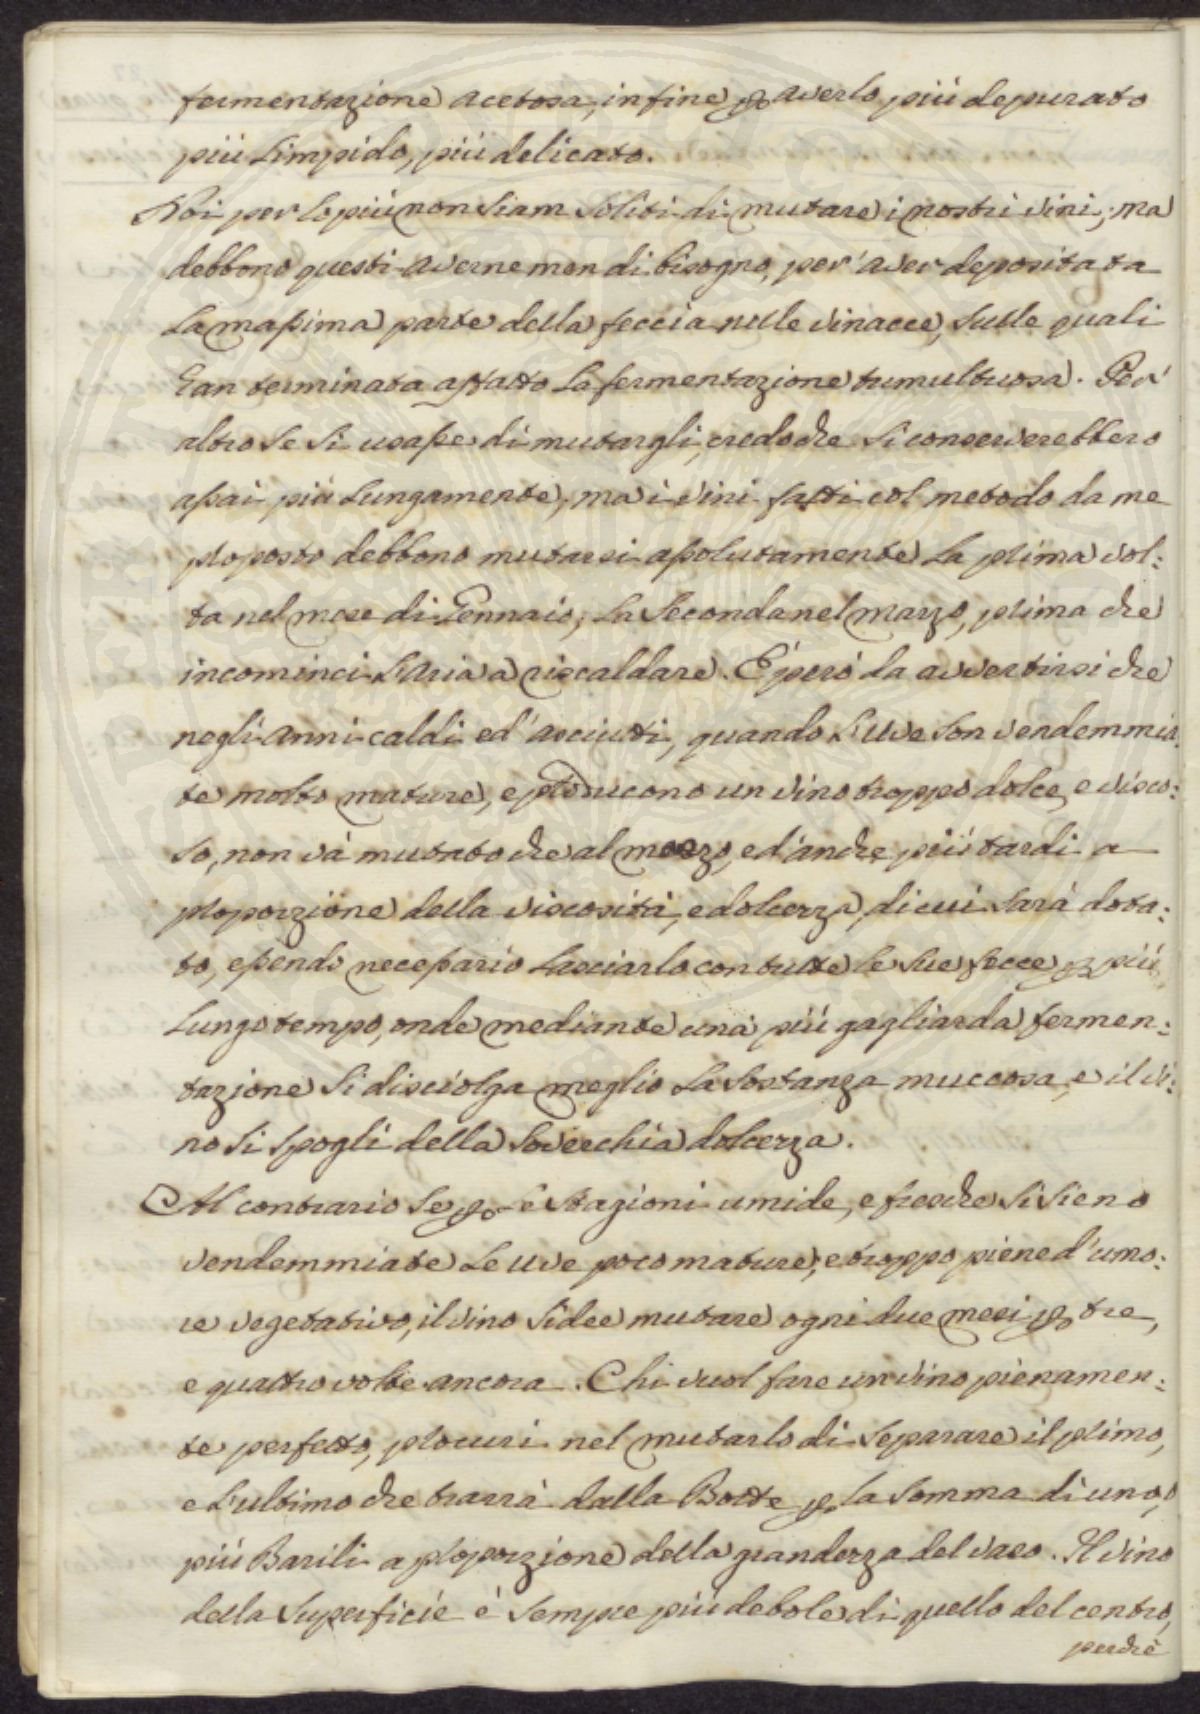 fermentazione acetosa, infine p averlo più depurato
più limpido, più delicato.
Noi per lo più non siam soliti di mutare i nostri vini; ma
debbono questi averne men di bisogno, per aver depositata
la maßima parte della feccia nelle vinacce, sulle quali
han terminata affatto la fermentazione tumultuosa. Per'
altro se si usaße di mutargli, credo che si conserverebbero
aßai più lungamente; ma i vini fatti col metodo da me
proposto debbono mutarsi aßolutamente la prima vol:
ta nel mese di Gennaio, la seconda nel marzo, prima che
incominci l'aria a riscaldare. È però da avvertirsi che
negli anni caldi ed' asciutti, quando l'uve son vendemmia
te molto mature, e producono un vino troppo dolce, e visco:
so, non và mutato che al marzo, ed' anche più tardi a
proporzione della viscosità, e dolcezza, di cui sarà dota:
to, eßendo neceßario lasciarlo con tutte le sue fecce p più
lungo tempo, onde mediante una più gagliarda fermen:
tazione si disciolga meglio la sostanza muccosa, e il vi:
no si spogli della soverchia dolcezza.
Al contrario se p le stagioni umide, e fresche si sieno
vendemmiate le uve poco mature, e troppo piene d'umo:
re vegetativo, il vino si dee mutare ogni due mesi p tre,
e quattro volte ancora. Chi vuol fare un vino pienamen:
te perfetto, procuri nel mutarlo di separare il primo,
e l'ultimo che trarrà dalla Botte p la somma di uno, o
più Barili a proporzione della grandezza del vaso. Il vino
della superficie è sempre più debole di quello del centro,
perchè